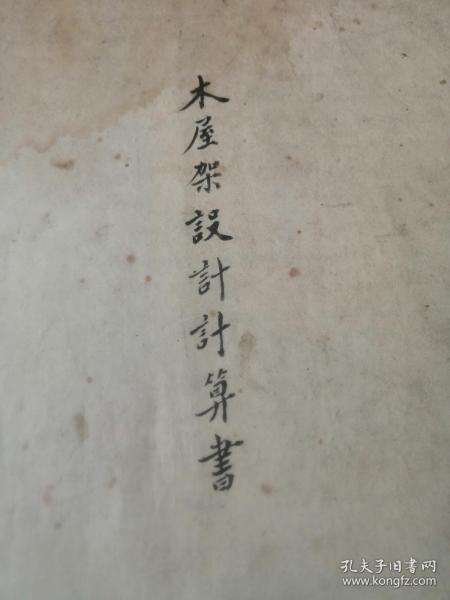 木屋架設計計算書
孔夫子旧书网
www.kongfz.com